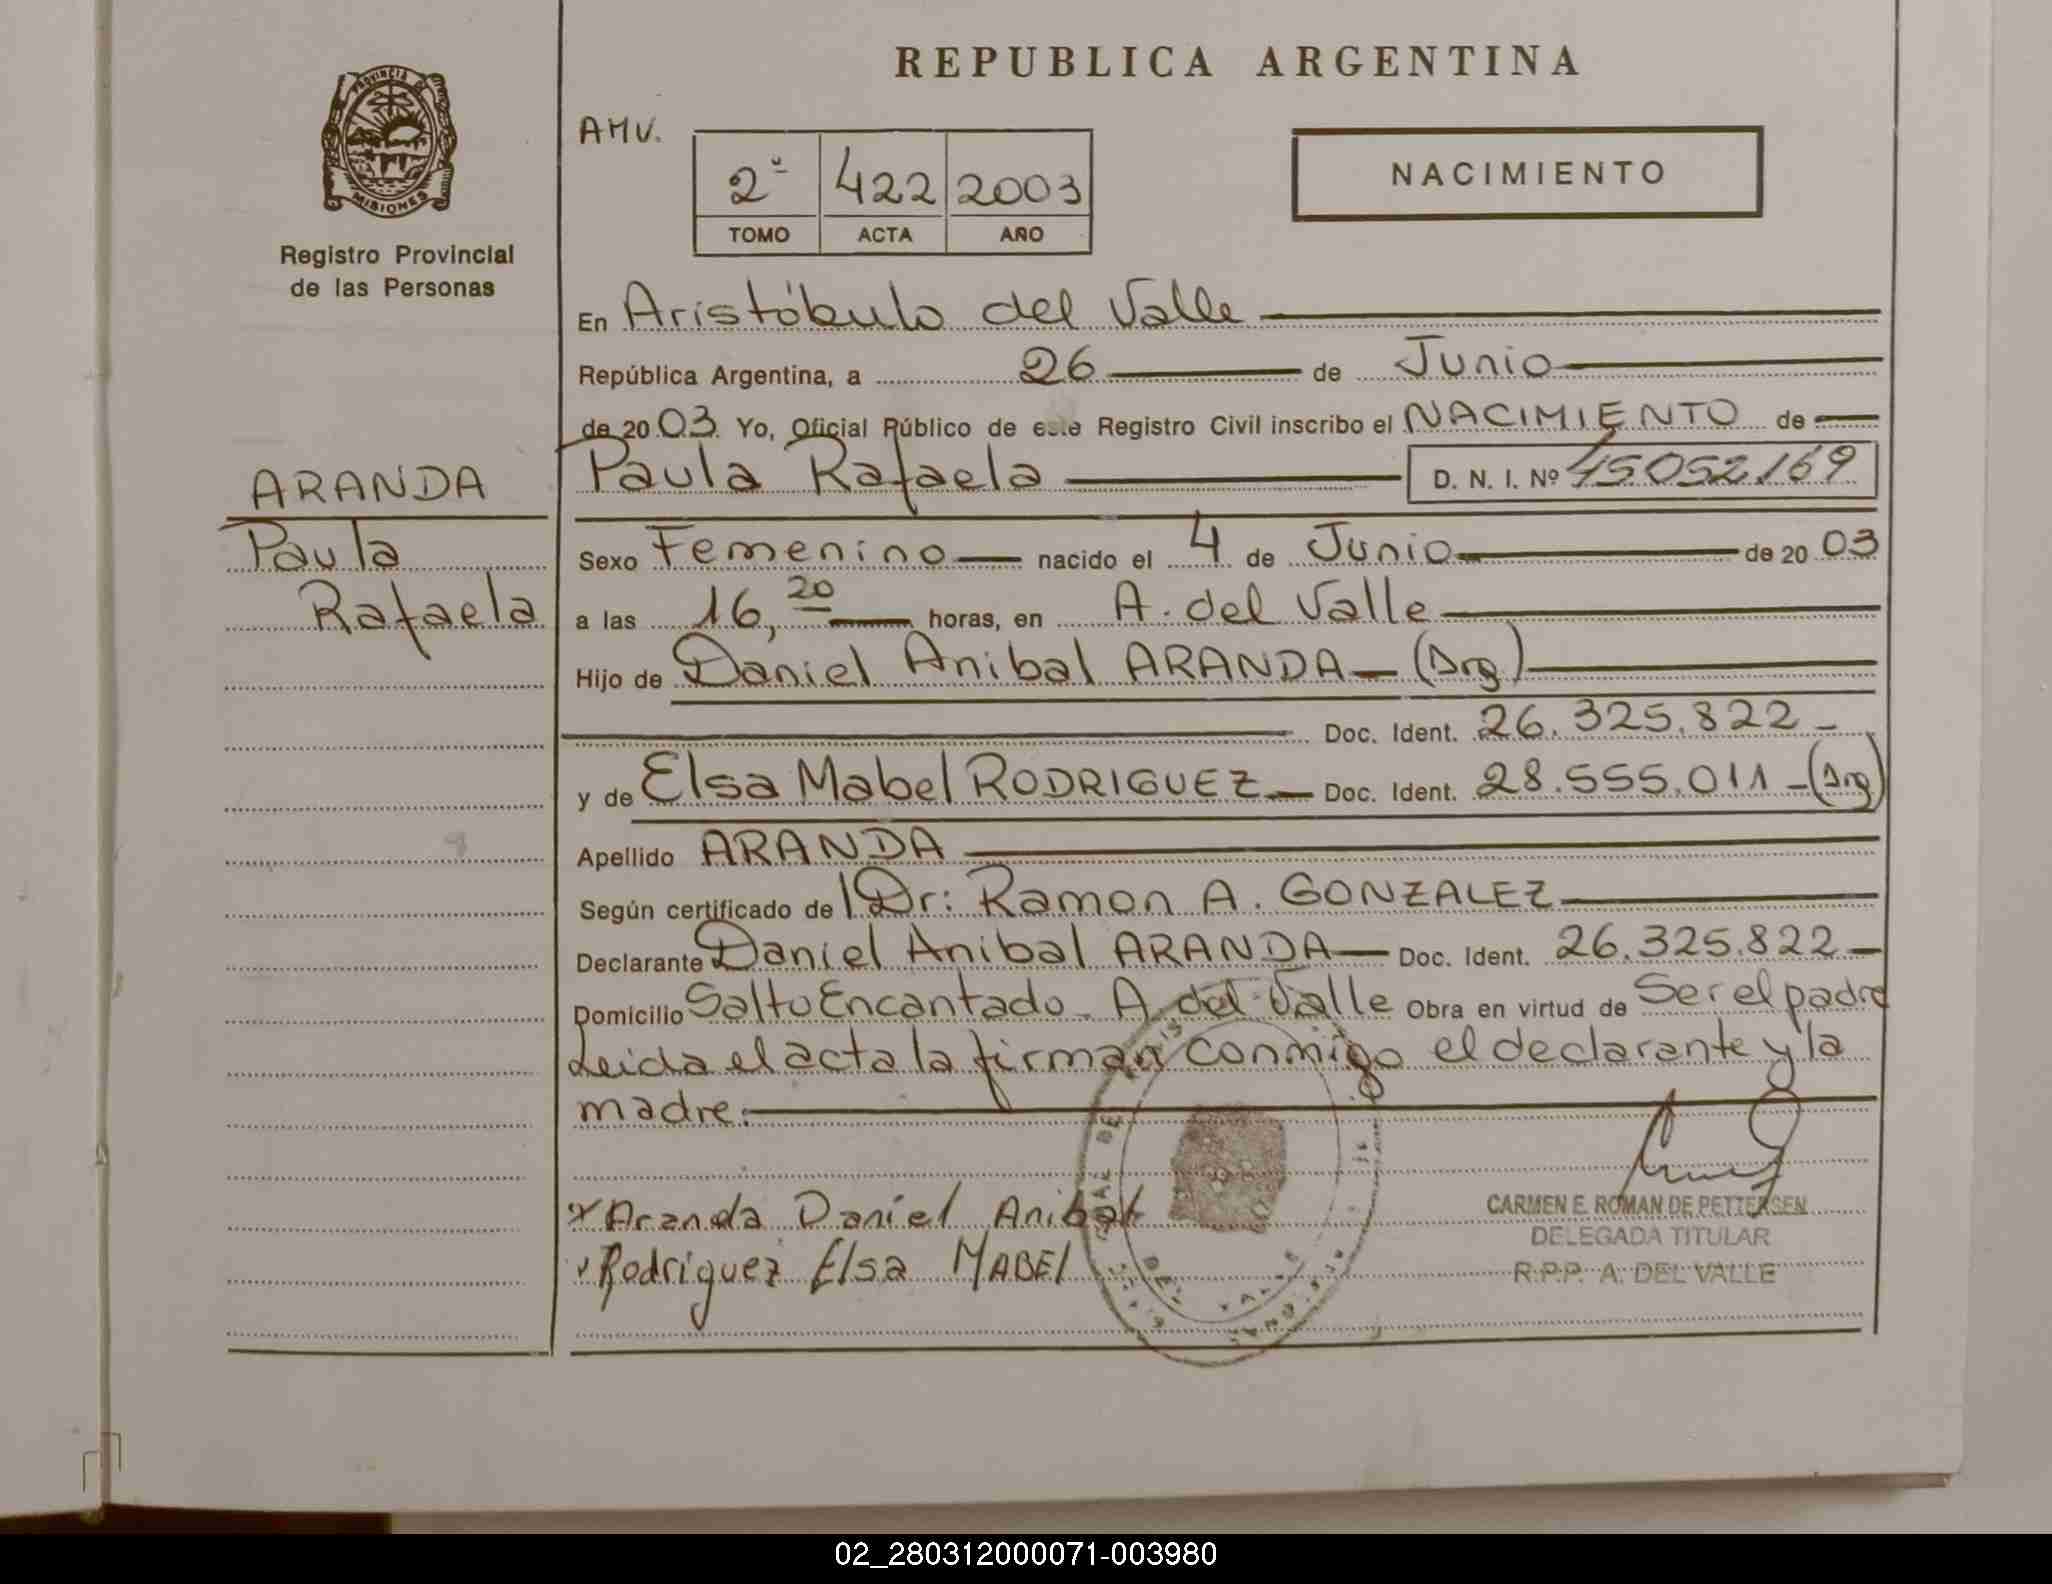 REPUBLICA ARGENTINA
PROVINCIA DE
MISIONES
Registro Provincial
de las Personas
AMV.
2º 422 2003
TOMO ACTA AÑO
NACIMIENTO
En Aristóbulo del Valle
República Argentina, a 26 de Junio
de 2003 Yo, Oficial Público de este Registro Civil inscribo el NACIMIENTO de
Paula Rafaela D. N. I. Nº 45052169
ARANDA
Paula
Rafaela
Sexo Femenino nacido el 4 de Junio de 2003
a las 16,20 horas, en A. del Valle
Hijo de Daniel Anibal ARANDA (Arg)
Doc. Ident. 26.325.822
y de Elsa Mabel RODRIGUEZ Doc. Ident. 28.555.011 (Arg)
Apellido ARANDA
Según certificado de Dr: Ramon A. GONZALEZ
Declarante Daniel Anibal ARANDA Doc. Ident. 26.325.822
Domicilio Salto Encantado - A. del Valle Obra en virtud de Ser el padre
Leida el acta la firman conmigo el declarante y la
madre.
Aranda Daniel Anibal
Rodriguez Elsa MABEL
CARMEN E. ROMAN DE PETTERSEN
DELEGADA TITULAR
R.P.P. A. DEL VALLE
DEL VALLE
02_280312000071-003980